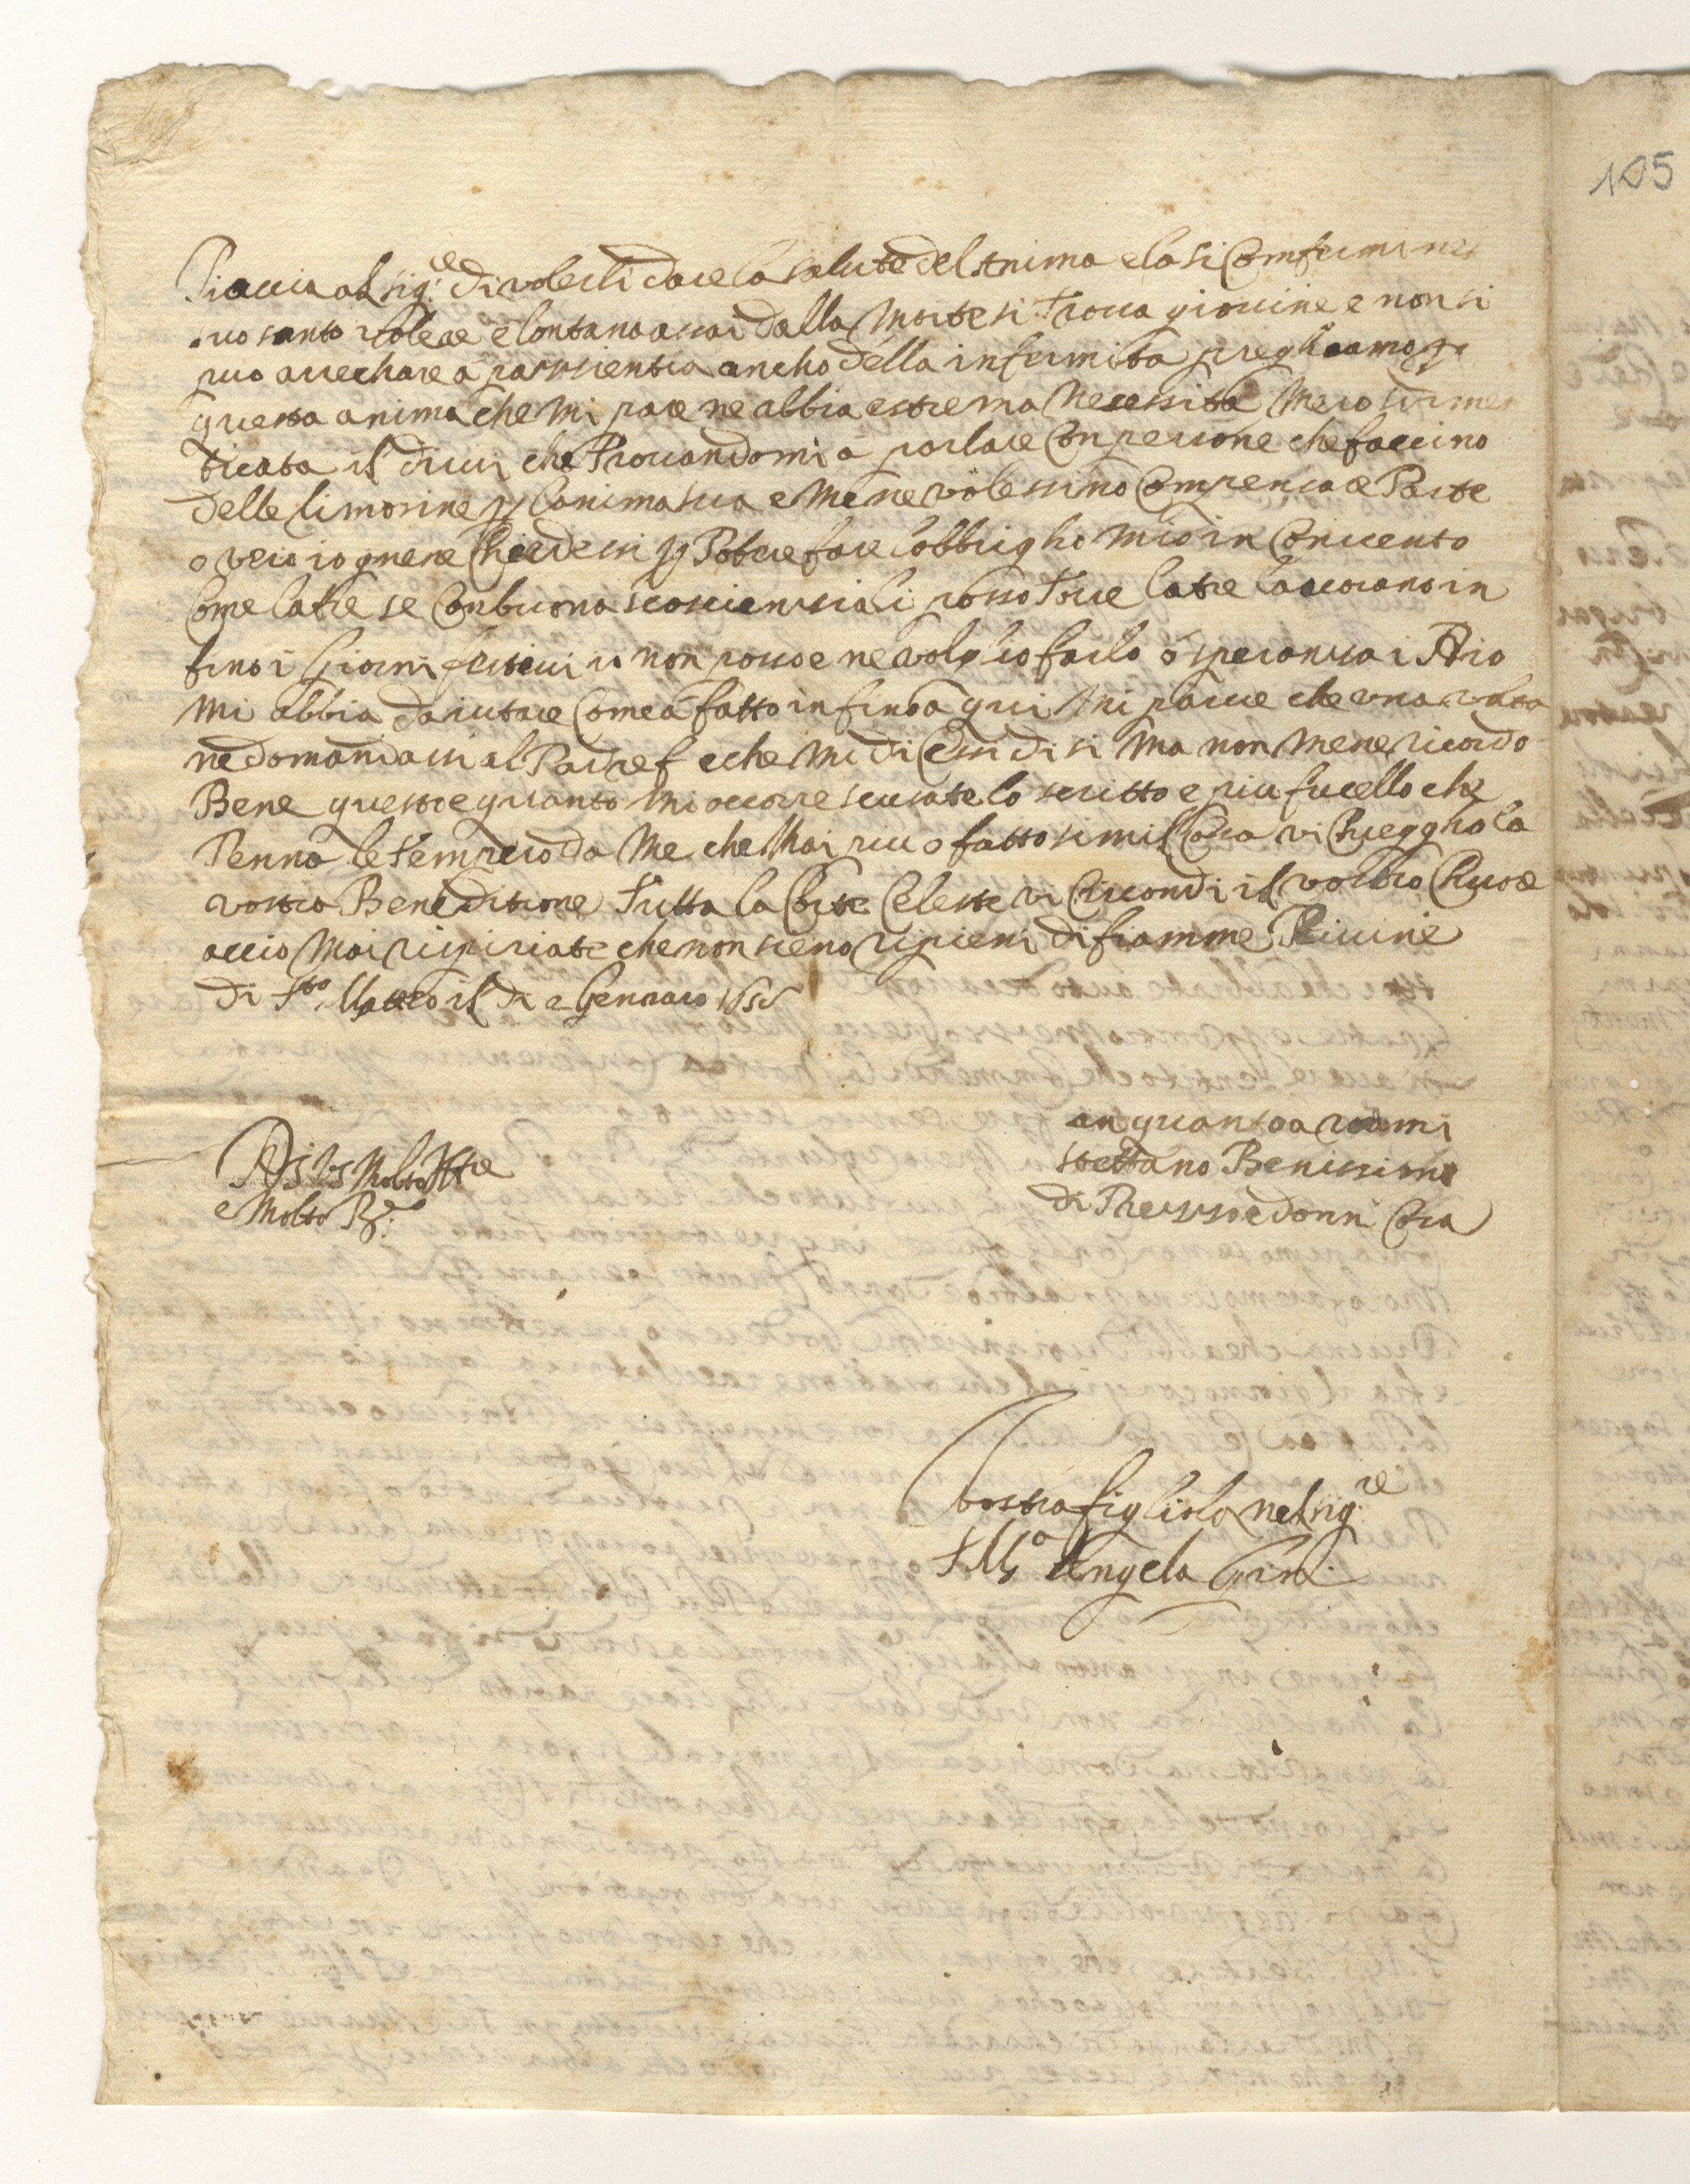 105
Piaccia al sig.re di volerli dare la salute del Anima e la si Comfermi nel
suo santo volere e lontano assai dalla Morte si Trova giovine e non si
puo arrechare a passientia ancho della infermita preghiamo p
questa anima che Mi pare ne abbia estrema Necessita Mero dimen
ticata il dirvi che Trovandomi a parlare Con persone che faccino
delle limosine p lanima sua e Me ne volessino Compensare Parte
o vero io gnene Chiedessi p Potere fare lobbrigho Mio in Convento
Come latre se Con buona scosciensia li posso Torre latre lavorano in
fino i Giorni festivi io non posso e ne volglio farlo o speransa i Dio
Mi abbia daiutare Come a fatto in fino a qui Mi parve che una volta
ne domandassi al Padre f e che Mi dicessi di si Ma non Mene ricordo
Bene questo e quanto Mi occorre scusate lo scritto e piu fucello che
Penna le Temprero da Me che Mai piu o fatto simil Cosa vi Chiegghio la
vostra Beneditione Tutta la Corte Celeste vi Circondi il vostro Chuore
accio Mai rispiriate che non sieno ripieni di fiamme Divine
di Sto Matteo il di 2 Gennaro
an quanto a
stettano Benissimo
di Pressioe donni Cosa
Di Vs Molto Itre
e Molto Rdo
Vostra figliola nel sig.re
S Ma Angela Gini